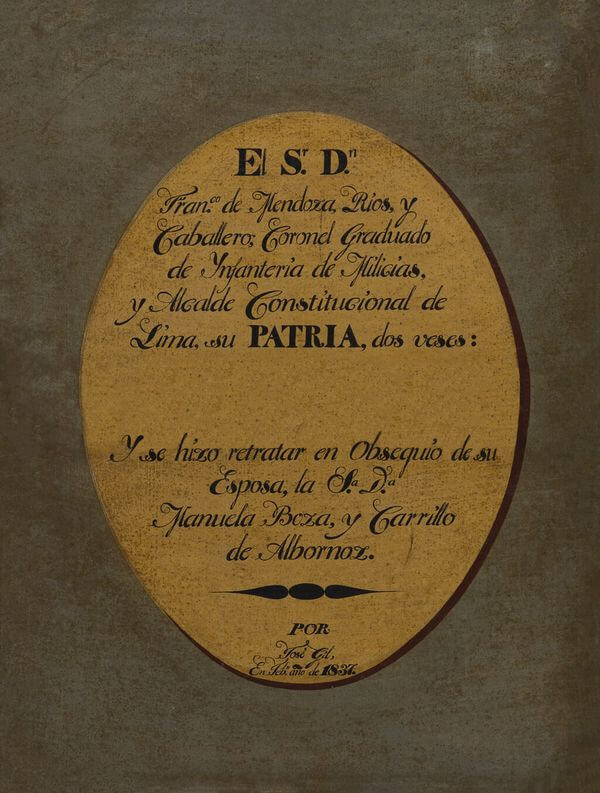 El S.r D.n
Fran.co de Mendoza, Rios, y
Caballero; Coronel Graduado
de Ynfanteria de Milicias,
y Alcalde Constitucional de
Lima, su PATRIA, dos veses:
Y se hizo retratar en Obsequio de su
Esposa, la S.a D.a
Manuela Boza, y Carrillo
de Albornoz.
POR
José Gil,
En Feb.o año de 1837.